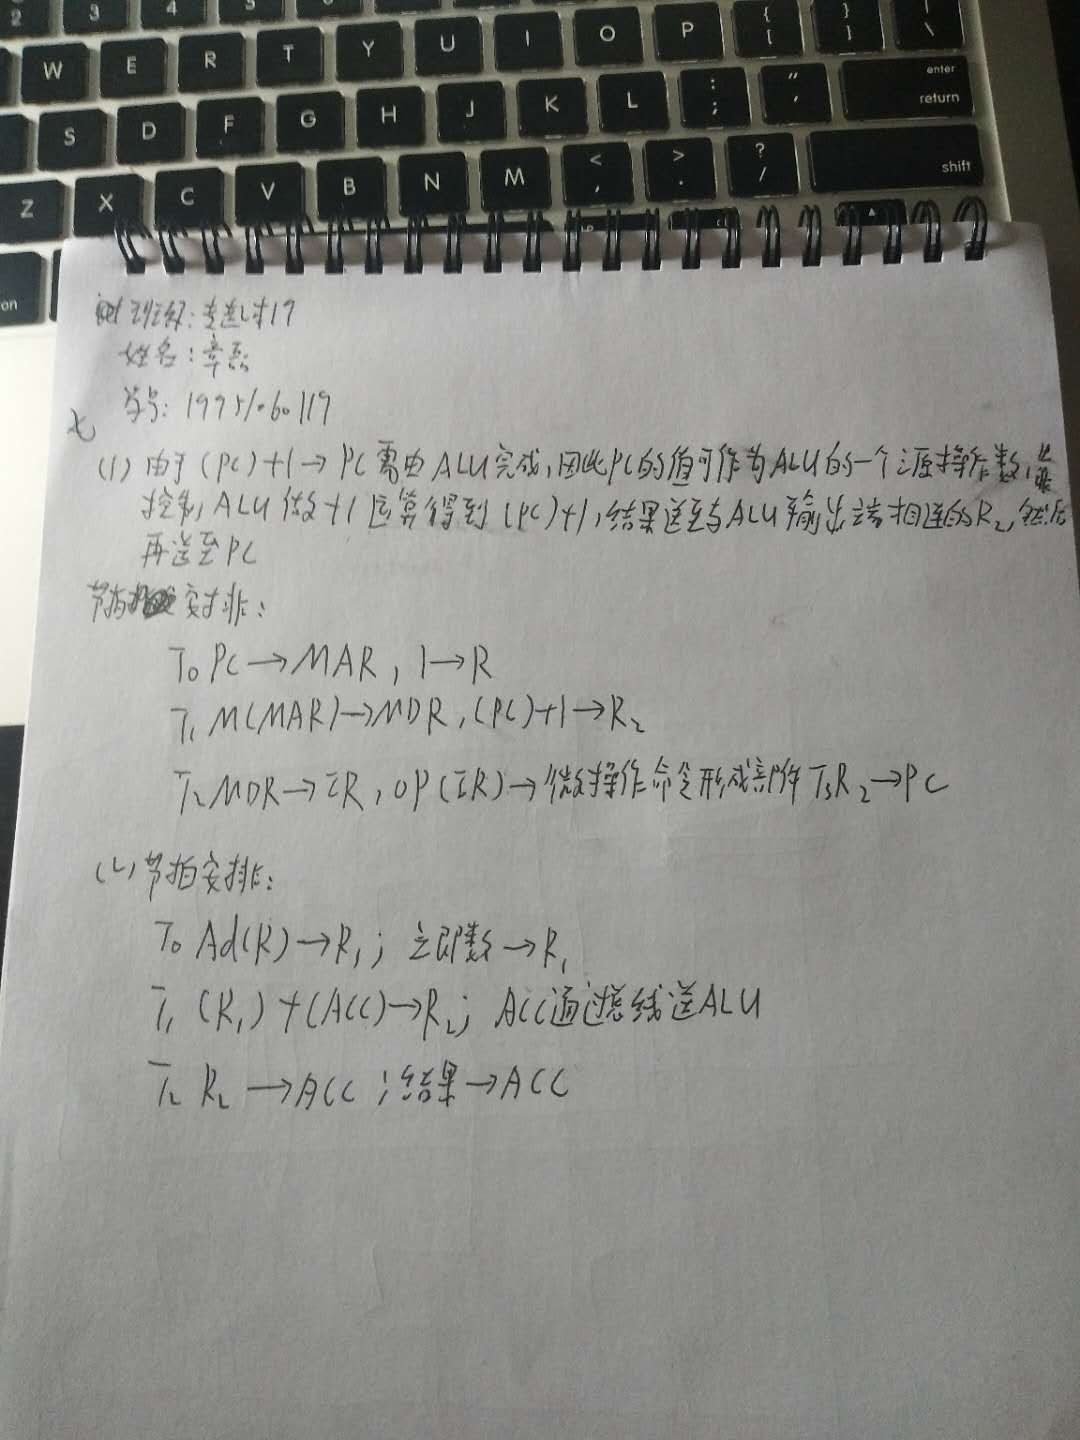 2 3 4 5 6
{ [ } ] | \
W E R T Y U I O P
enter
return
S D F G H J K L : ; " '
shift
Z X C V B N M < , > . ? /
班级:专送计17
姓名:章磊
学号: 19951060119
七
(1) 由于(PC)+1→PC需由ALU完成,因此PC的值可作为ALU的一个源操作数,
控制ALU做+1运算得到(PC)+1,结果送至与ALU输出端相连的R₂,然后
再送至PC
节拍安排:
T₀ PC→MAR, 1→R
T₁ M(MAR)→MDR, (PC)+1→R₂
T₂ MDR→IR, OP(IR)→微操作命令形成部件 T₃R₂→PC
(2) 节拍安排:
T₀ Ad(R)→R₁; 立即数→R₁
T₁ (R₁)+(ACC)→R₂; ACC通过总线送ALU
T₂ R₂→ACC ;结果→ACC